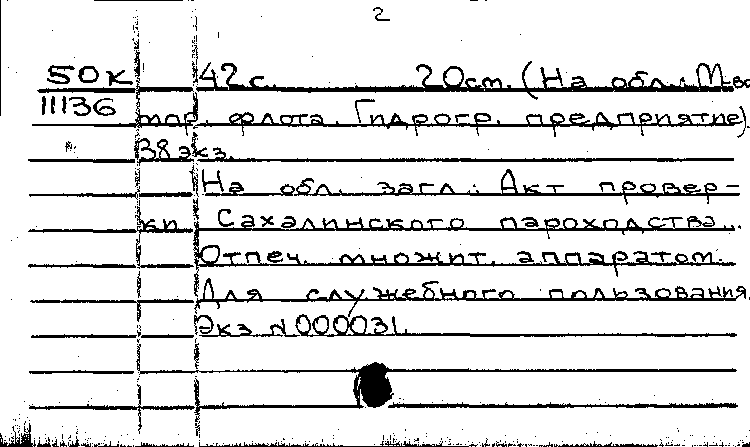 2
50к 42 с. 20см. (На обл.: М-во
11136 мор. флота. Гидрогр. предприятие).
38 экз.
На обл. загл.: Акт провер-
ки Сахалинского пароходства...
Отпеч. множит. аппаратом.
Для служебного пользования.
Экз N000031.